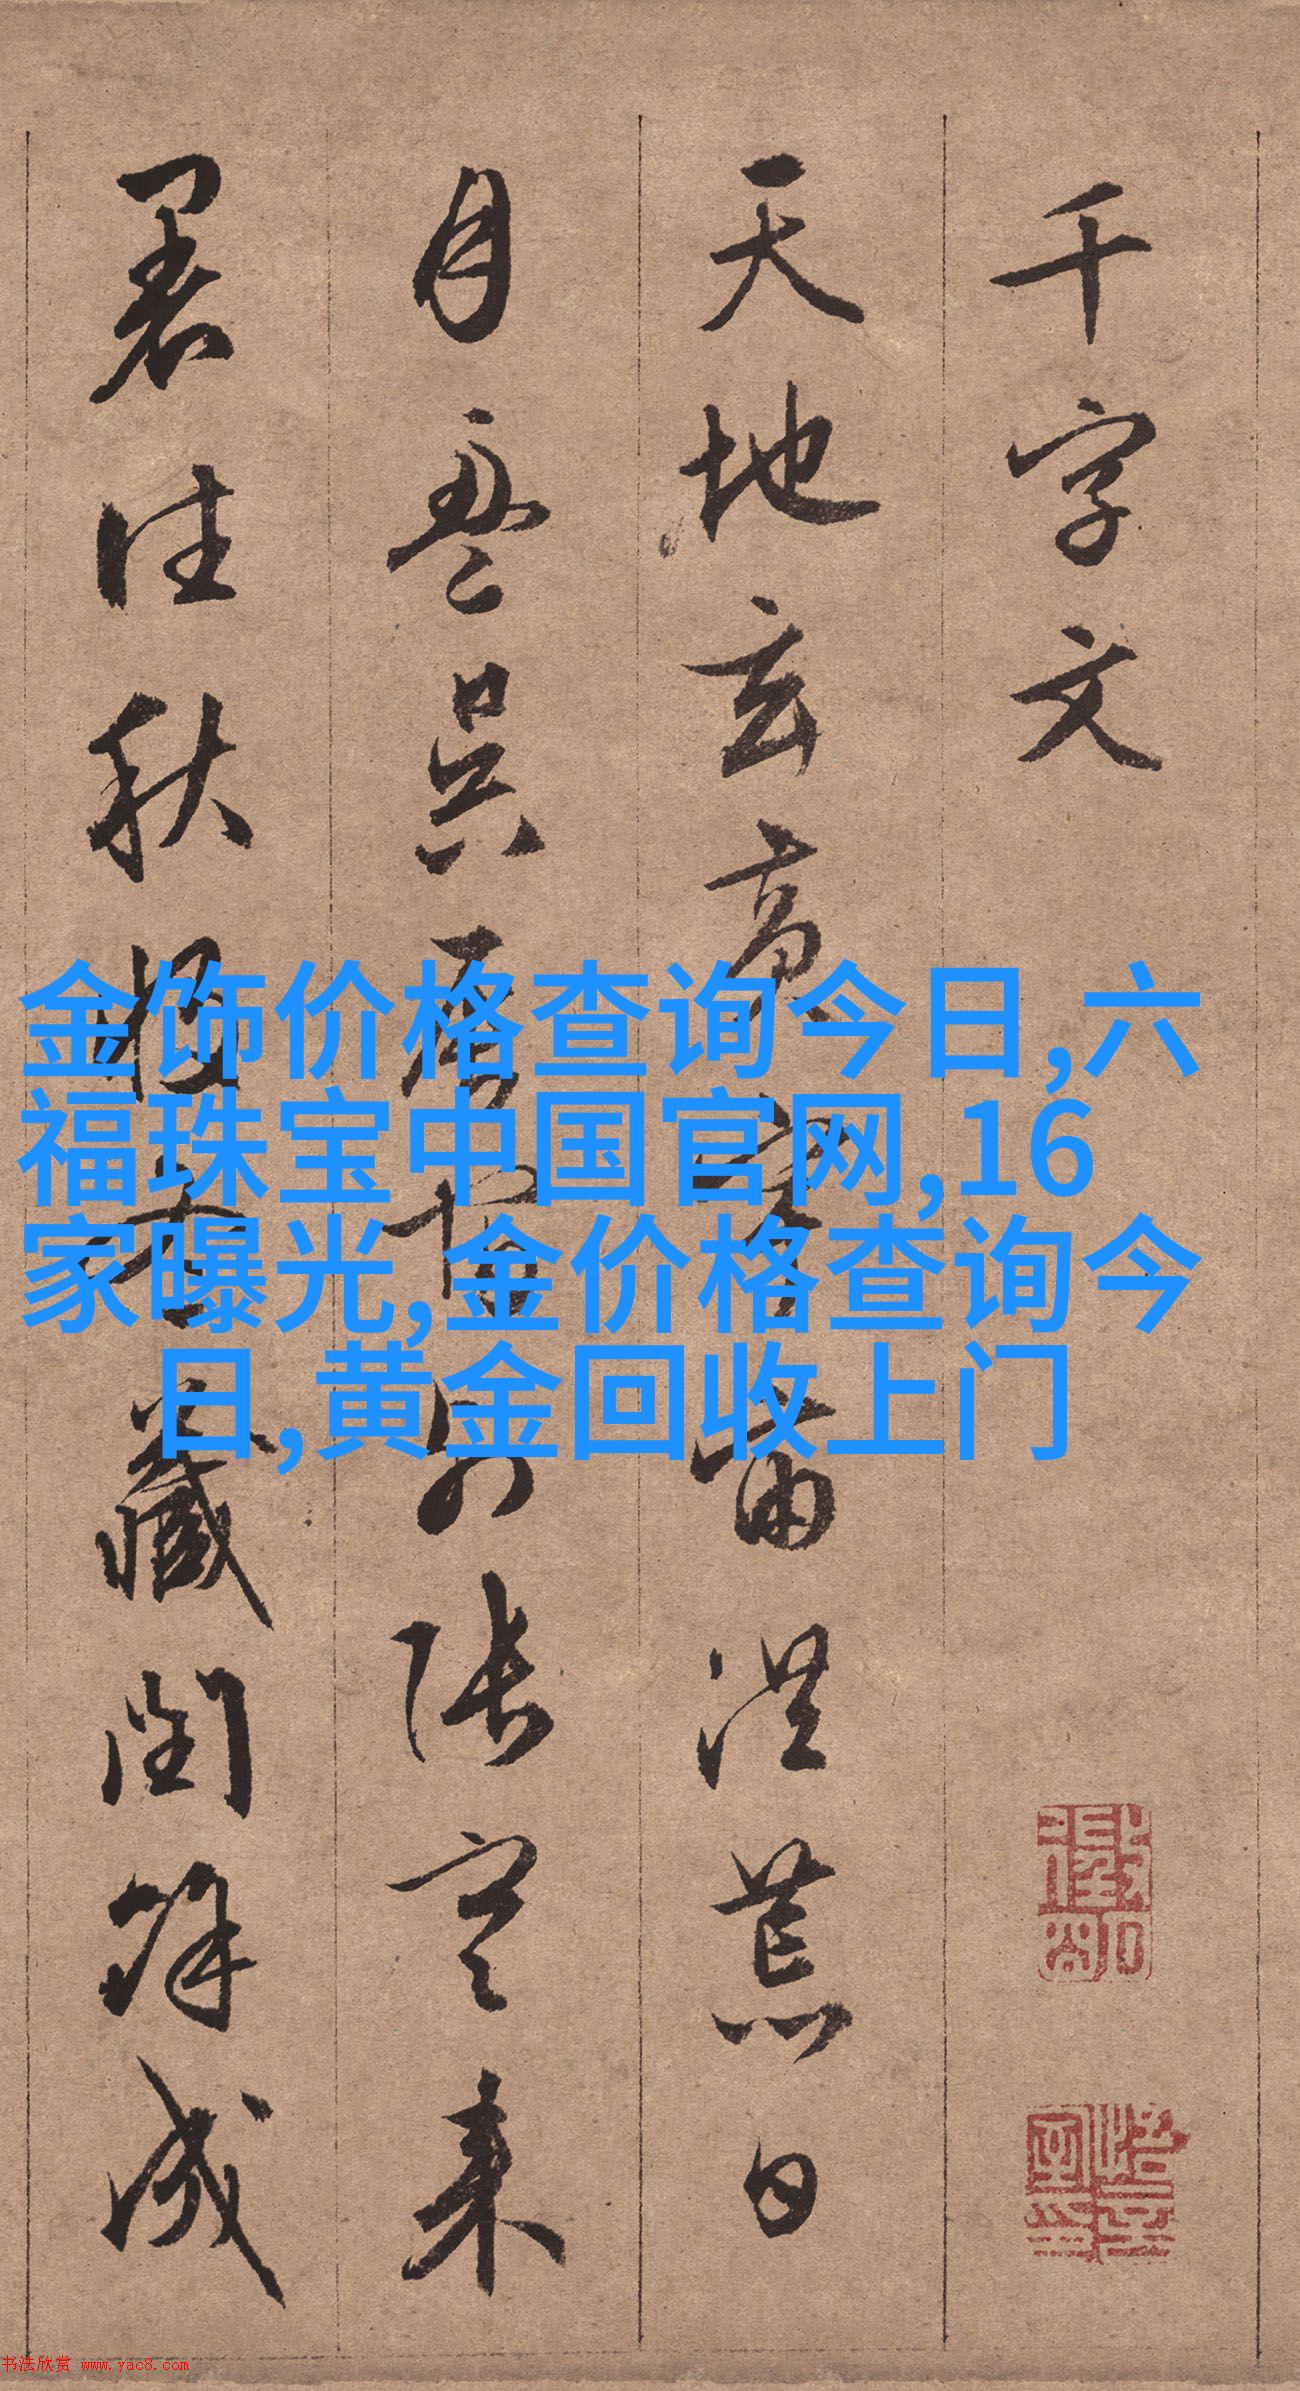 千字文
天地玄黄宇宙洪荒日
月盈昃辰宿列张寒来
暑往秋收冬藏闰馀成
金饰价格查询今日,六
福珠宝中国官网,16
家曝光,金价格查询今
日,黄金回收上门
书法欣赏 www.yac8.com